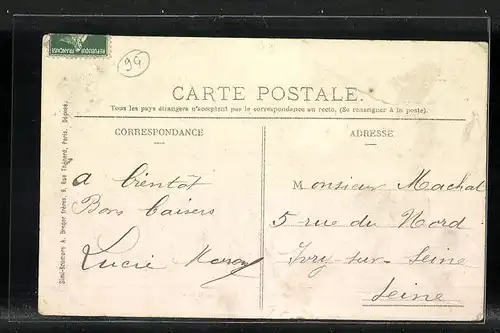 REPUBLIQUE FRANÇAISE
94
CARTE POSTALE.
Tous les pays étrangers n'acceptent pas la correspondance au recto. (Se renseigner à la poste).
CORRESPONDANCE
a bientôt
Bons baisers
Lucie
ADRESSE
Monsieur Machal
5 rue du Nord
Ivry-sur-Seine
Seine
Simi-Bromure A. Breger frères, 9, Rue Thénard, Paris. Déposé.